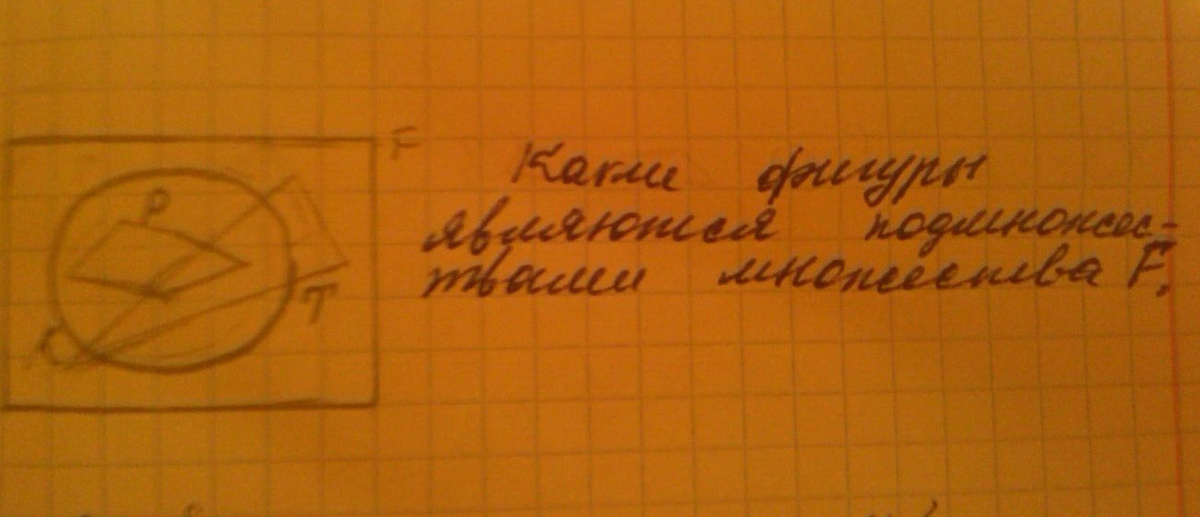 F
Какие фигуры
P
являются подмножес-
твами множества F.
T
C